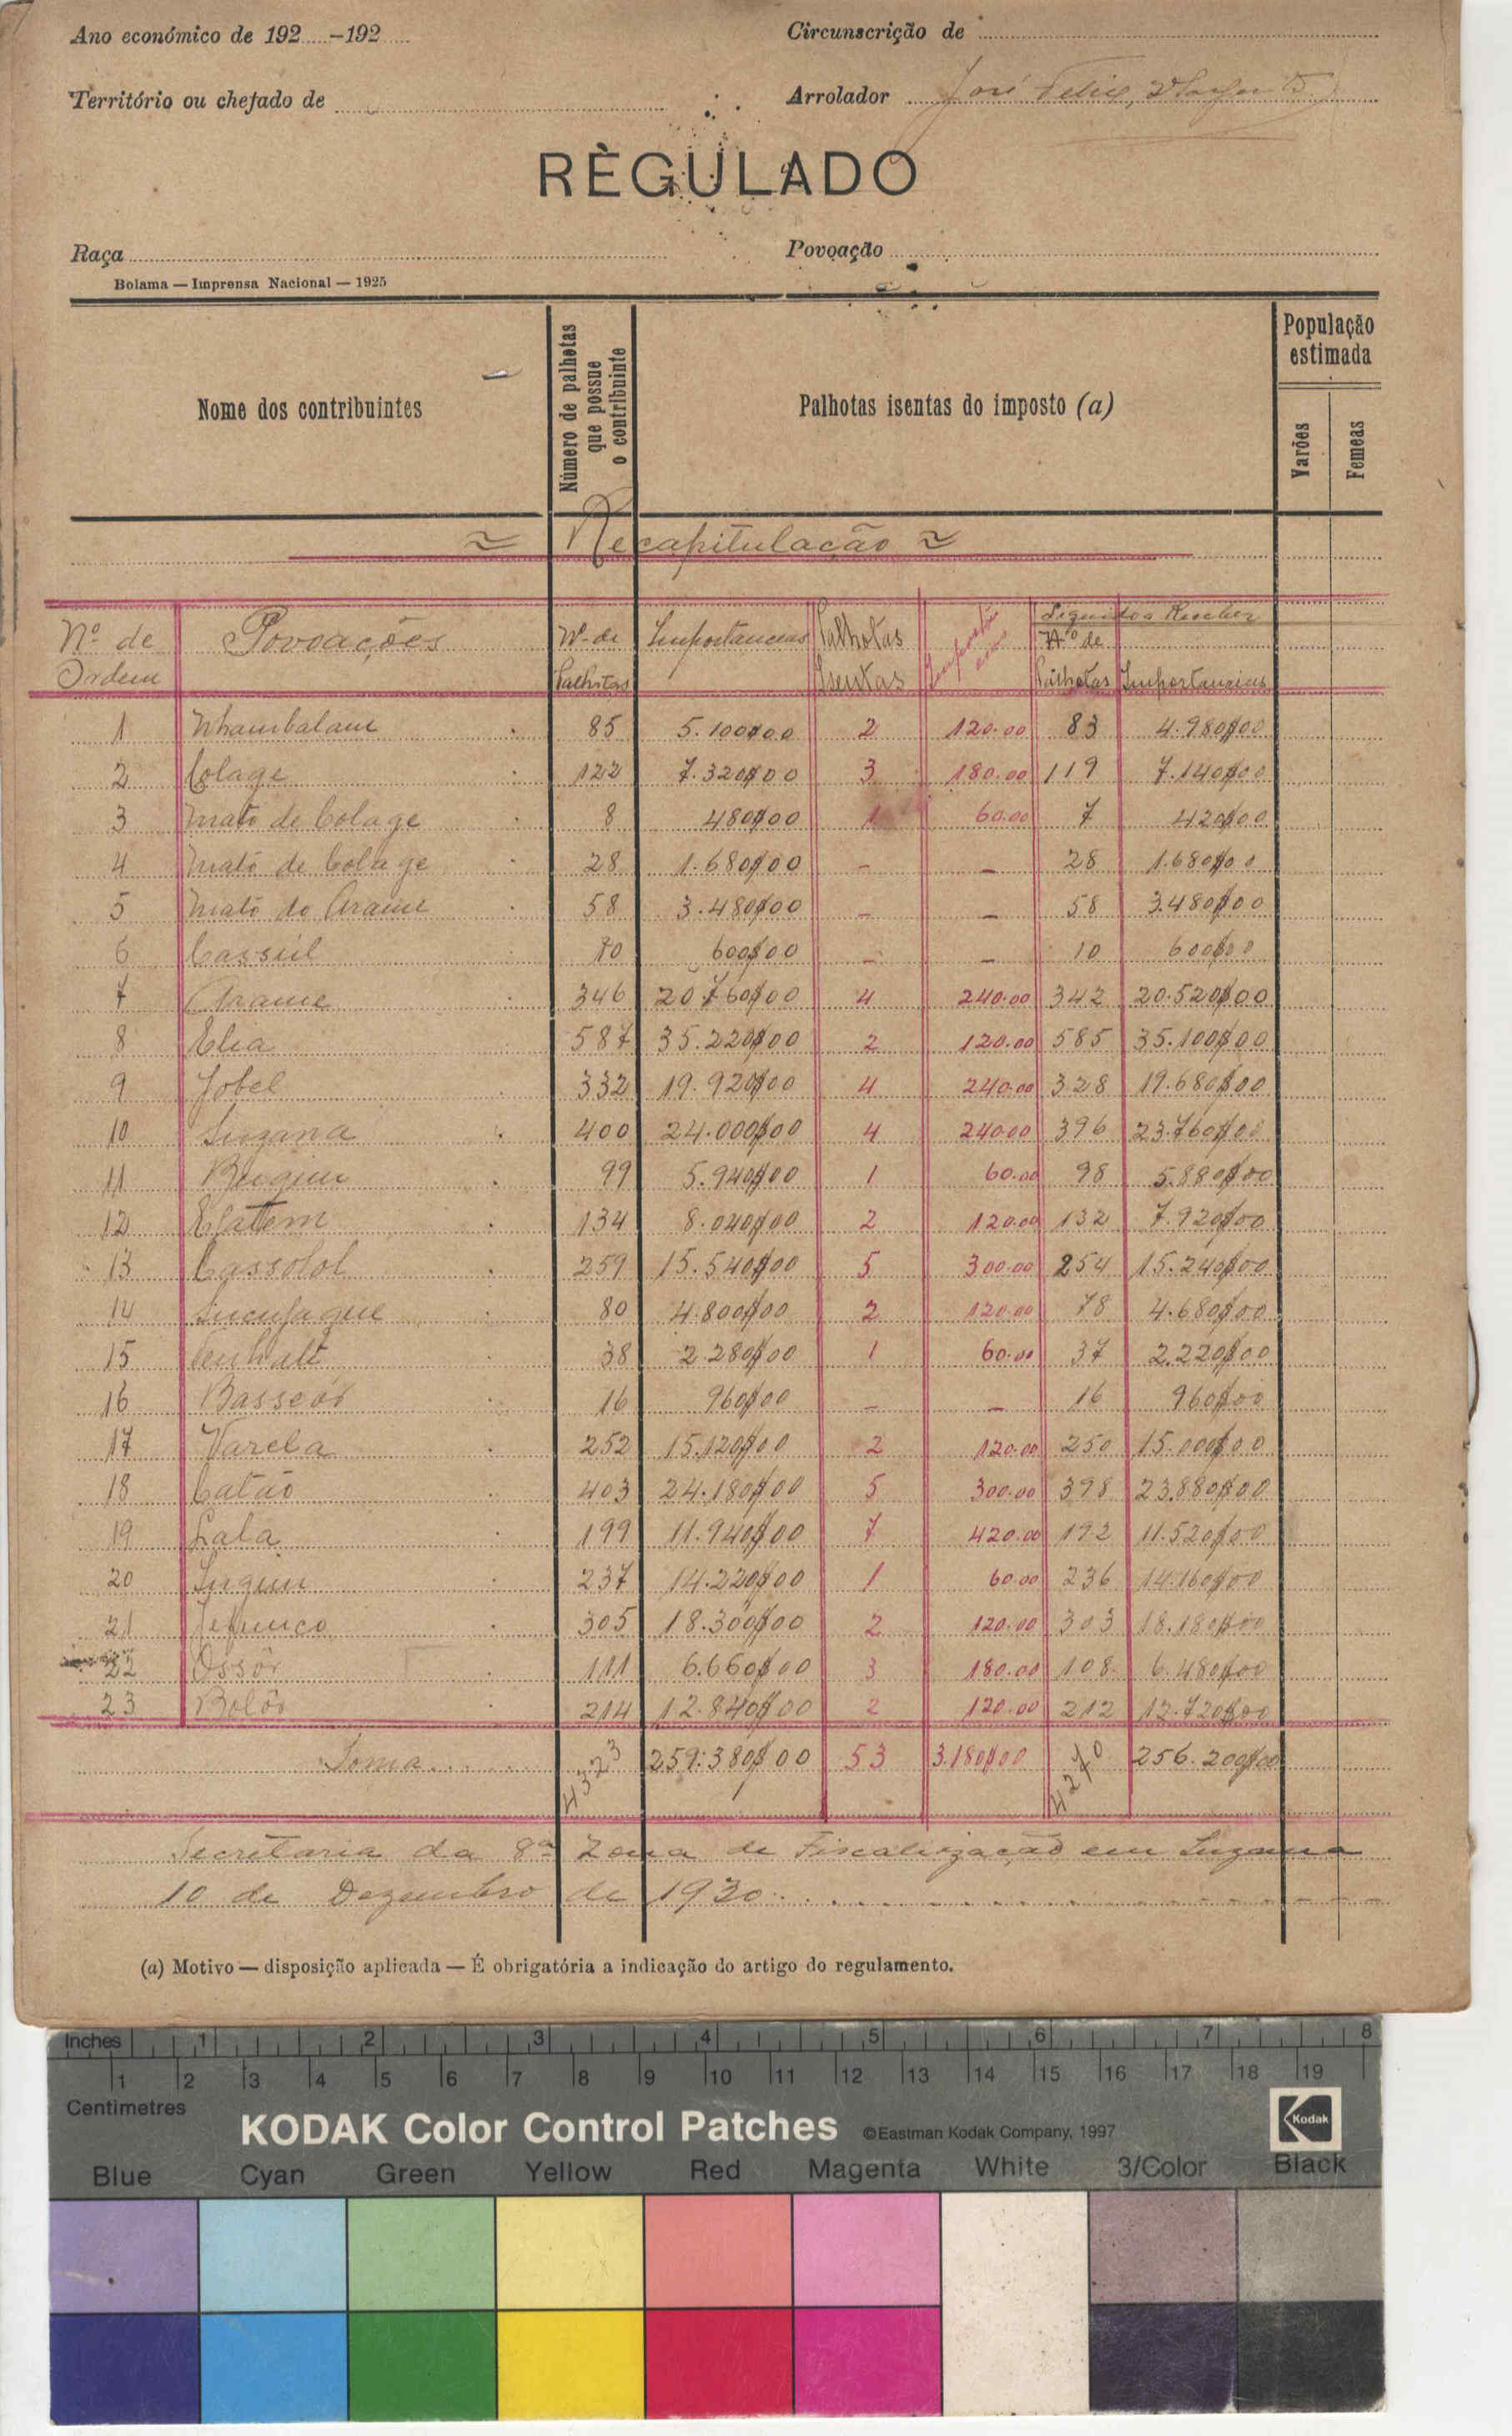 Ano económico de 192 -192
Circunscrição de
Território ou chefado de
Arrolador José Felix,
RÈGULADO
Raça
Povoação
Bolama — Imprensa Nacional — 1925
Nome dos contribuintes
Número de palhotas que possue o contribuinte
Palhotas isentas do imposto (a)
População estimada
Varões
Femeas
Recapitulação
Nº de Ordem Povoações Nº de Palhotas Importancias Palhotas Isentas Liquidos a Receber Nº de Palhotas Importancias
1 Nhambalam 85 5.100$00 2 120.00 83 4.980$00
2 Colage 122 7.320$00 3 180.00 119 7.140$00
3 Mato de Colage 8 480$00 1 60.00 7 420$00
4 Mato de Colage 28 1.680$00 - - 28 1.680$00
5 Mato do Arame 58 3.480$00 - - 58 3.480$00
6 Cassúl 10 600$00 - - 10 600$00
7 Arame 346 20.760$00 4 240.00 342 20.520$00
8 Elia 587 35.220$00 2 120.00 585 35.100$00
9 Jobel 332 19.920$00 4 240.00 328 19.680$00
10 Suzana 400 24.000$00 4 240.00 396 23.760$00
11 99 5.940$00 1 60.00 98 5.880$00
12 134 8.040$00 2 120.00 132 7.920$00
13 Cassolol 259 15.540$00 5 300.00 254 15.240$00
14 Sucujaque 80 4.800$00 2 120.00 78 4.680$00
15 38 2.280$00 1 60.00 37 2.220$00
16 Basseór 16 960$00 - - 16 960$00
17 Varela 252 15.120$00 2 120.00 250 15.000$00
18 Catão 403 24.180$00 5 300.00 398 23.880$00
19 Lala 199 11.940$00 7 420.00 192 11.520$00
20 237 14.220$00 1 60.00 236 14.160$00
21 Jefunco 305 18.300$00 2 120.00 303 18.180$00
22 Ossôr 111 6.660$00 3 180.00 108 6.480$00
23 Bolôr 214 12.840$00 2 120.00 212 12.720$00
Soma 4323 259:380$00 53 3.180$00 4270 256.200$00
Secretaria da 8ª Zona de Fiscalização em Suzana
10 de Dezembro de 1930
(a) Motivo — disposição aplicada — É obrigatória a indicação do artigo do regulamento.
Inches 1 2 3 4 5 6 7 8
1 2 3 4 5 6 7 8 9 10 11 12 13 14 15 16 17 18 19
Centimetres
KODAK Color Control Patches ©Eastman Kodak Company, 1997 Kodak
Blue Cyan Green Yellow Red Magenta White 3/Color Black